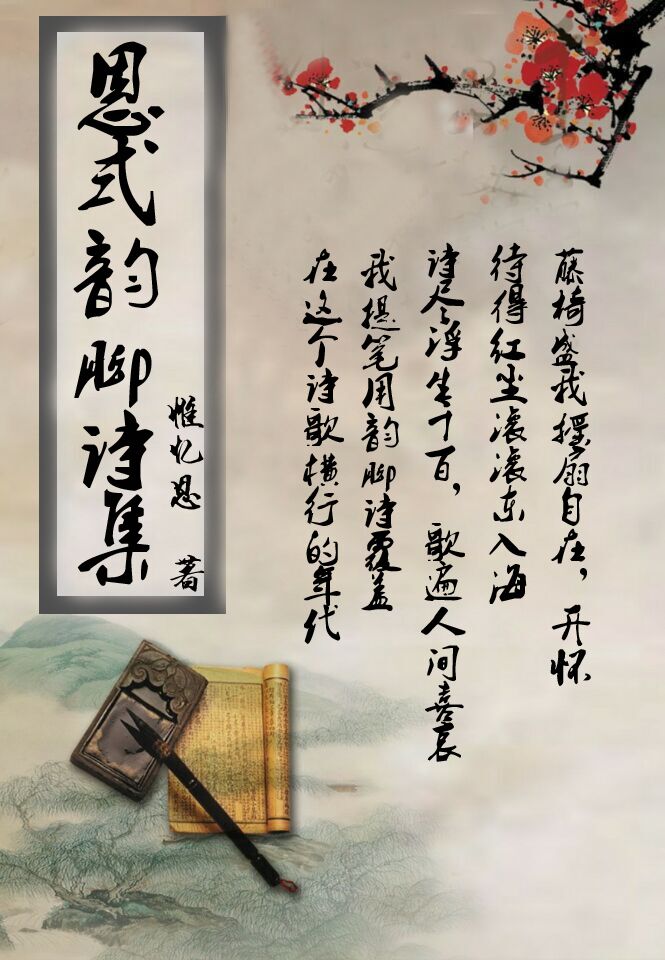 恩式韵脚诗集
惟忆恩 著
藤椅盛我摇扇自在，开怀
待得红尘滚滚东入海
诗人浮生千百，歌遍人间喜哀
我提笔用韵脚诗覆盖
在这个诗歌横行的年代